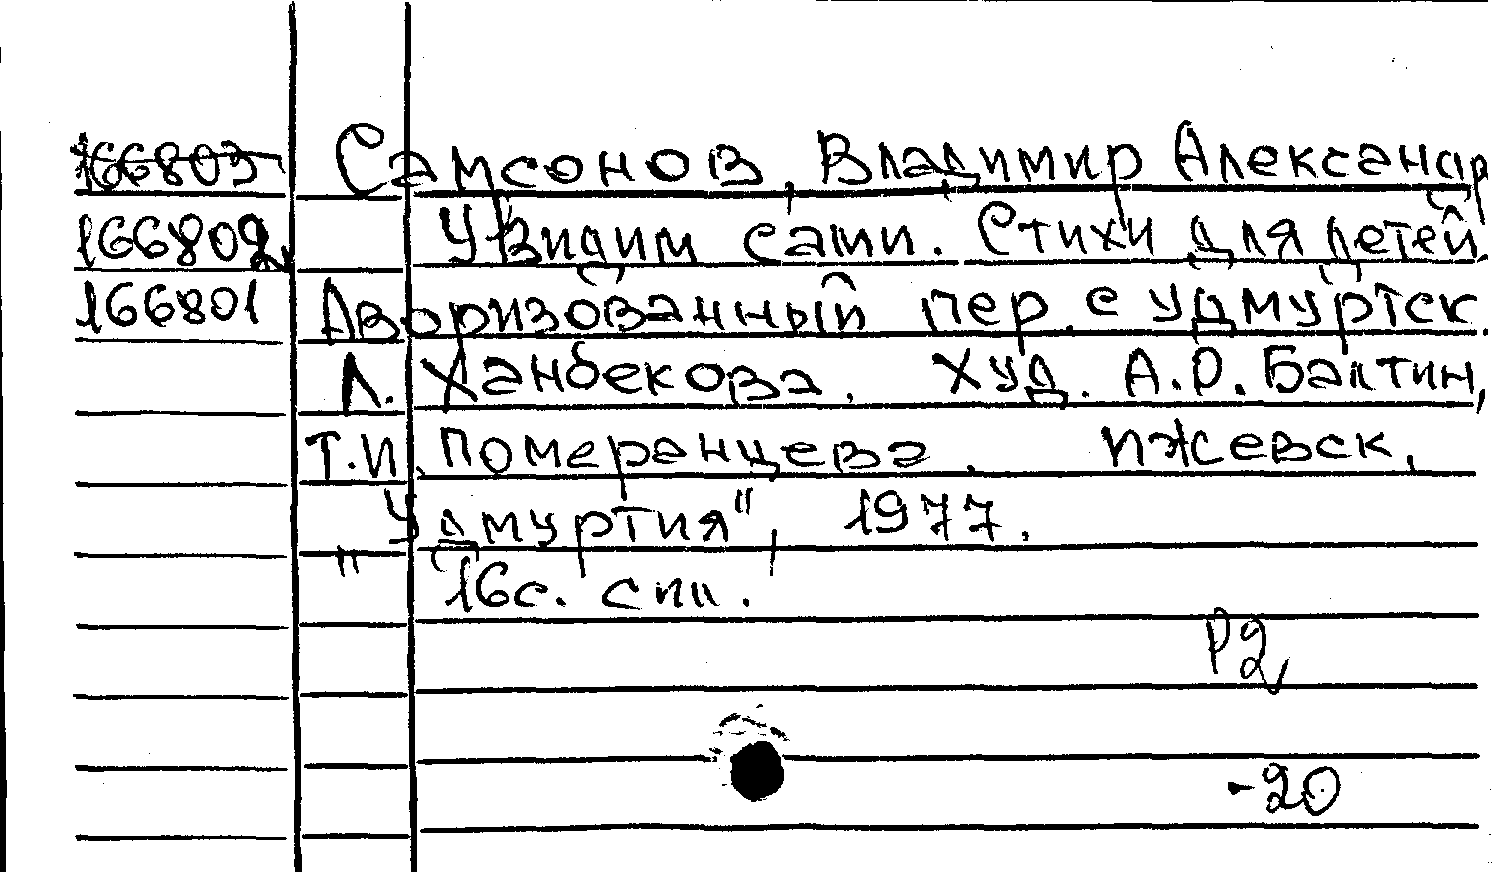 166803 Самсонов, Владимир Александр
166802 Увидим сами. Стихи для детей.
166801 Авторизованный пер. с удмуртск.
Л. Ханбекова. Худ. А.Р. Бактин,
Т.И. Померанцева. Ижевск,
"Удмуртия", 1977.
16с. с ил.
Р2
-20